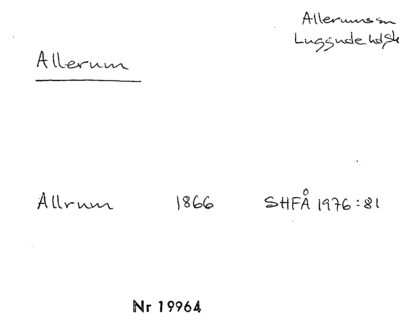 Allerums sn
Luggude hd, Sk
Allerum
Allrum 1866 SHFÅ 1976:81
Nr 19964